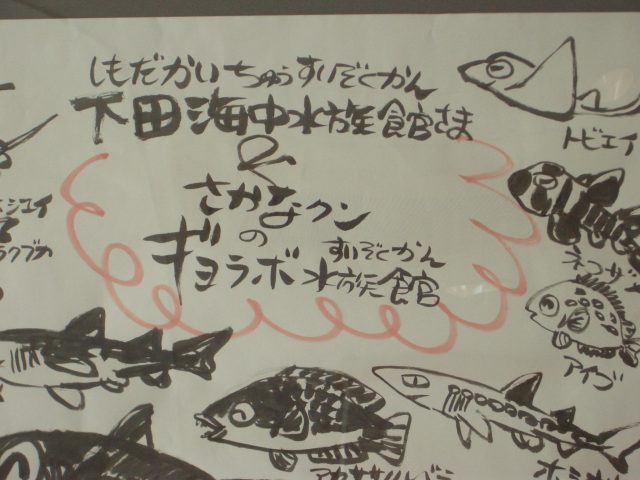 しもだかいちゅうすいぞくかん
下田海中水族館さま
&
さかなクン
の
ギョラボ水族館
すいぞくかん
トビエイ
アイゴ